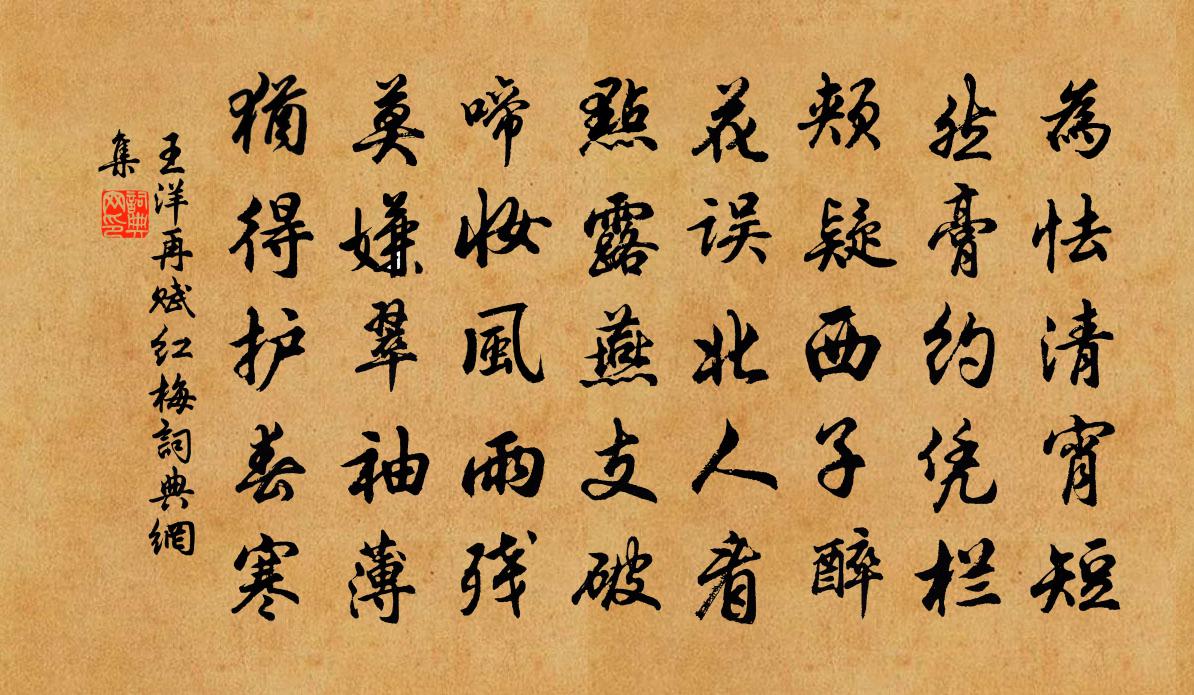 為怯清宵短
然膏约凭栏
頰疑西子醉
花误北人看
點露燕支破
啼妝風雨残
莫嫌翠袖薄
猶得护春寒
王洋再赋红梅詞典網
集
詞典网印